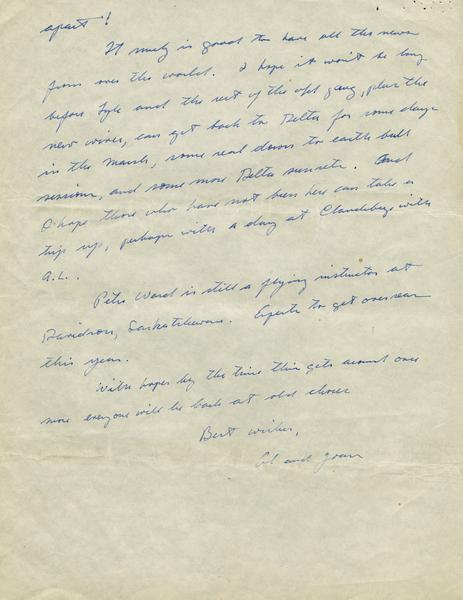 apart!
It surely is good to have all the news
from over the world. I hope it won't be long
before Lyle and the rest of the old gang, plus the
new wives, can get back to Delta for some days
in the marsh, some real down to earth bull
sessions, and some more Delta sunsets. And
I hope those who have not been here can take a
trip up, perhaps with a day at Clandeboye with
A.L..
Peter Ward is still a flying instructor at
Davidson, Saskatchewan. Expects to get overseas
this year.
With hopes by the time this gets around once
more everyone will be back at old chores
Best wishes,
Al and Joan